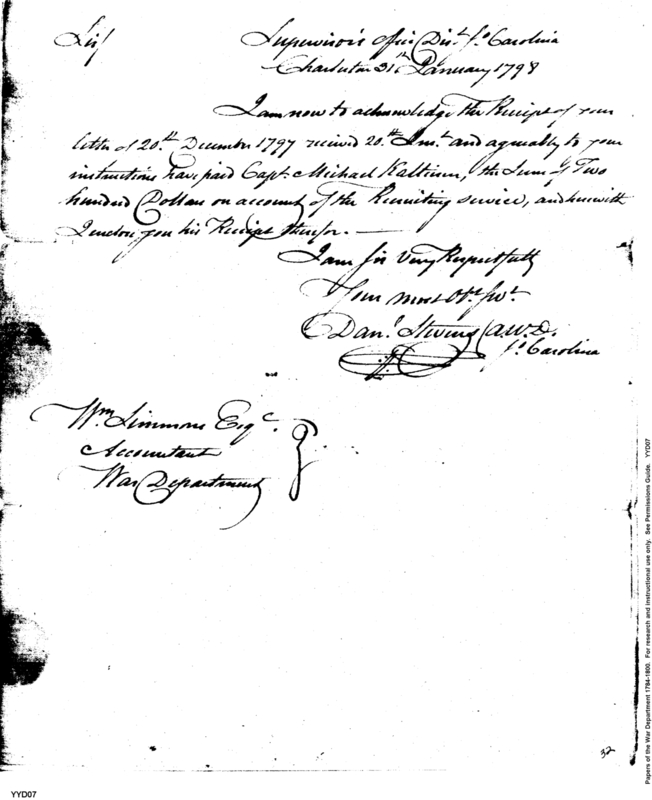 Sir/
Supervisor's office Dist. So. Carolina
Charleston 31st January 1798
I am now to acknowledge the Receipt of your
letter of 20.th December 1797 received 20.th Inst. and agreeably to your
instructions have paid Capt. Michael Kalteisen, the Sum of Two
hundred Dollars on account of the Recruiting service, and herewith
I enclose you his Receipt therefor. —
I am Sir Very Respectfully
Your most Obt. Svt.
Danl. Stevens A.W.D.
So. Carolina
Wm. Simmons Esqr.
Accountant
War Department
32
Papers of the War Department 1784-1800. For research and instructional use only. See Permissions Guide. YYD07
YYD07